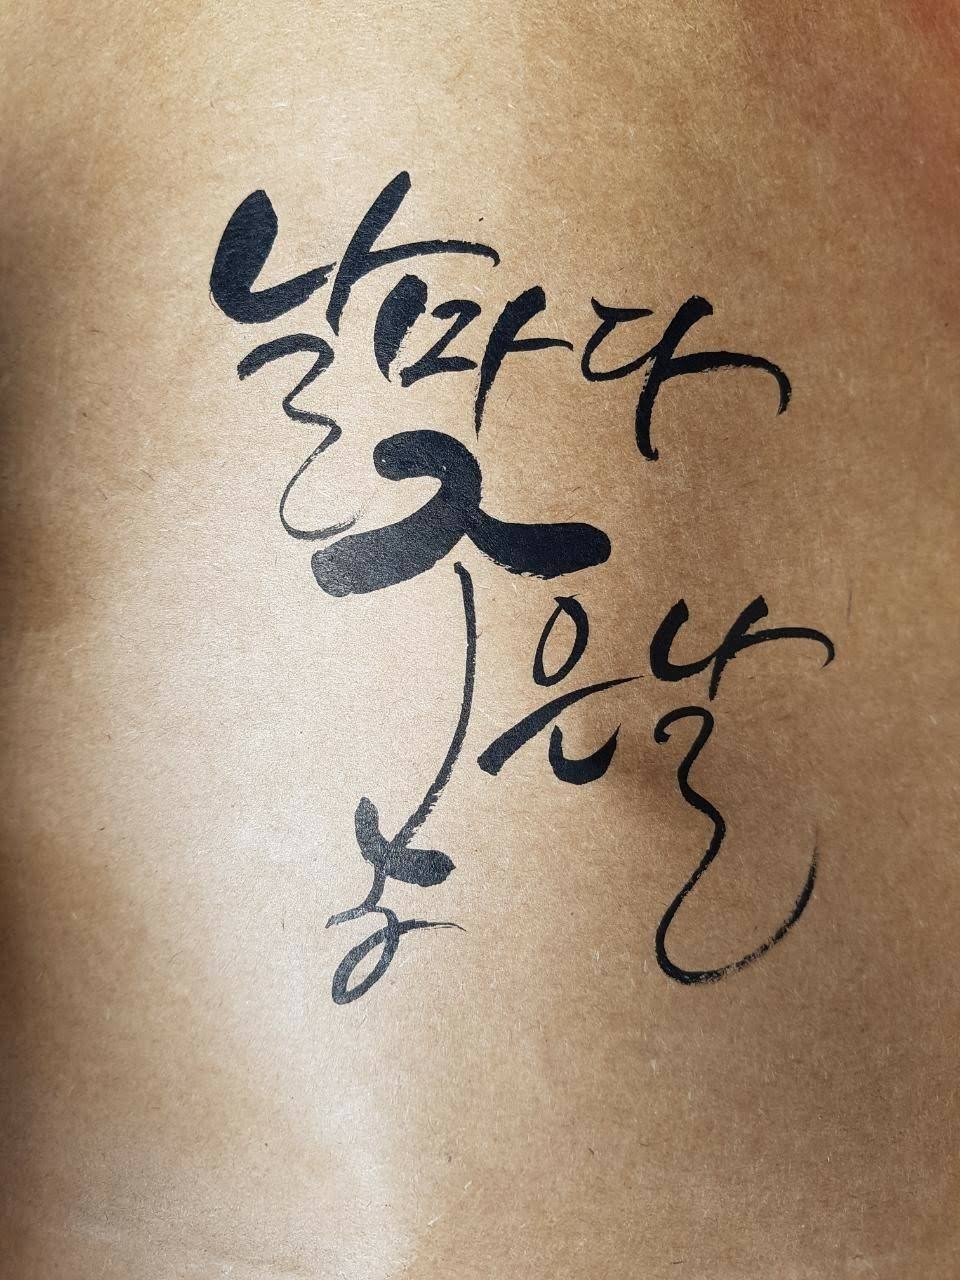 날마다
좋은날